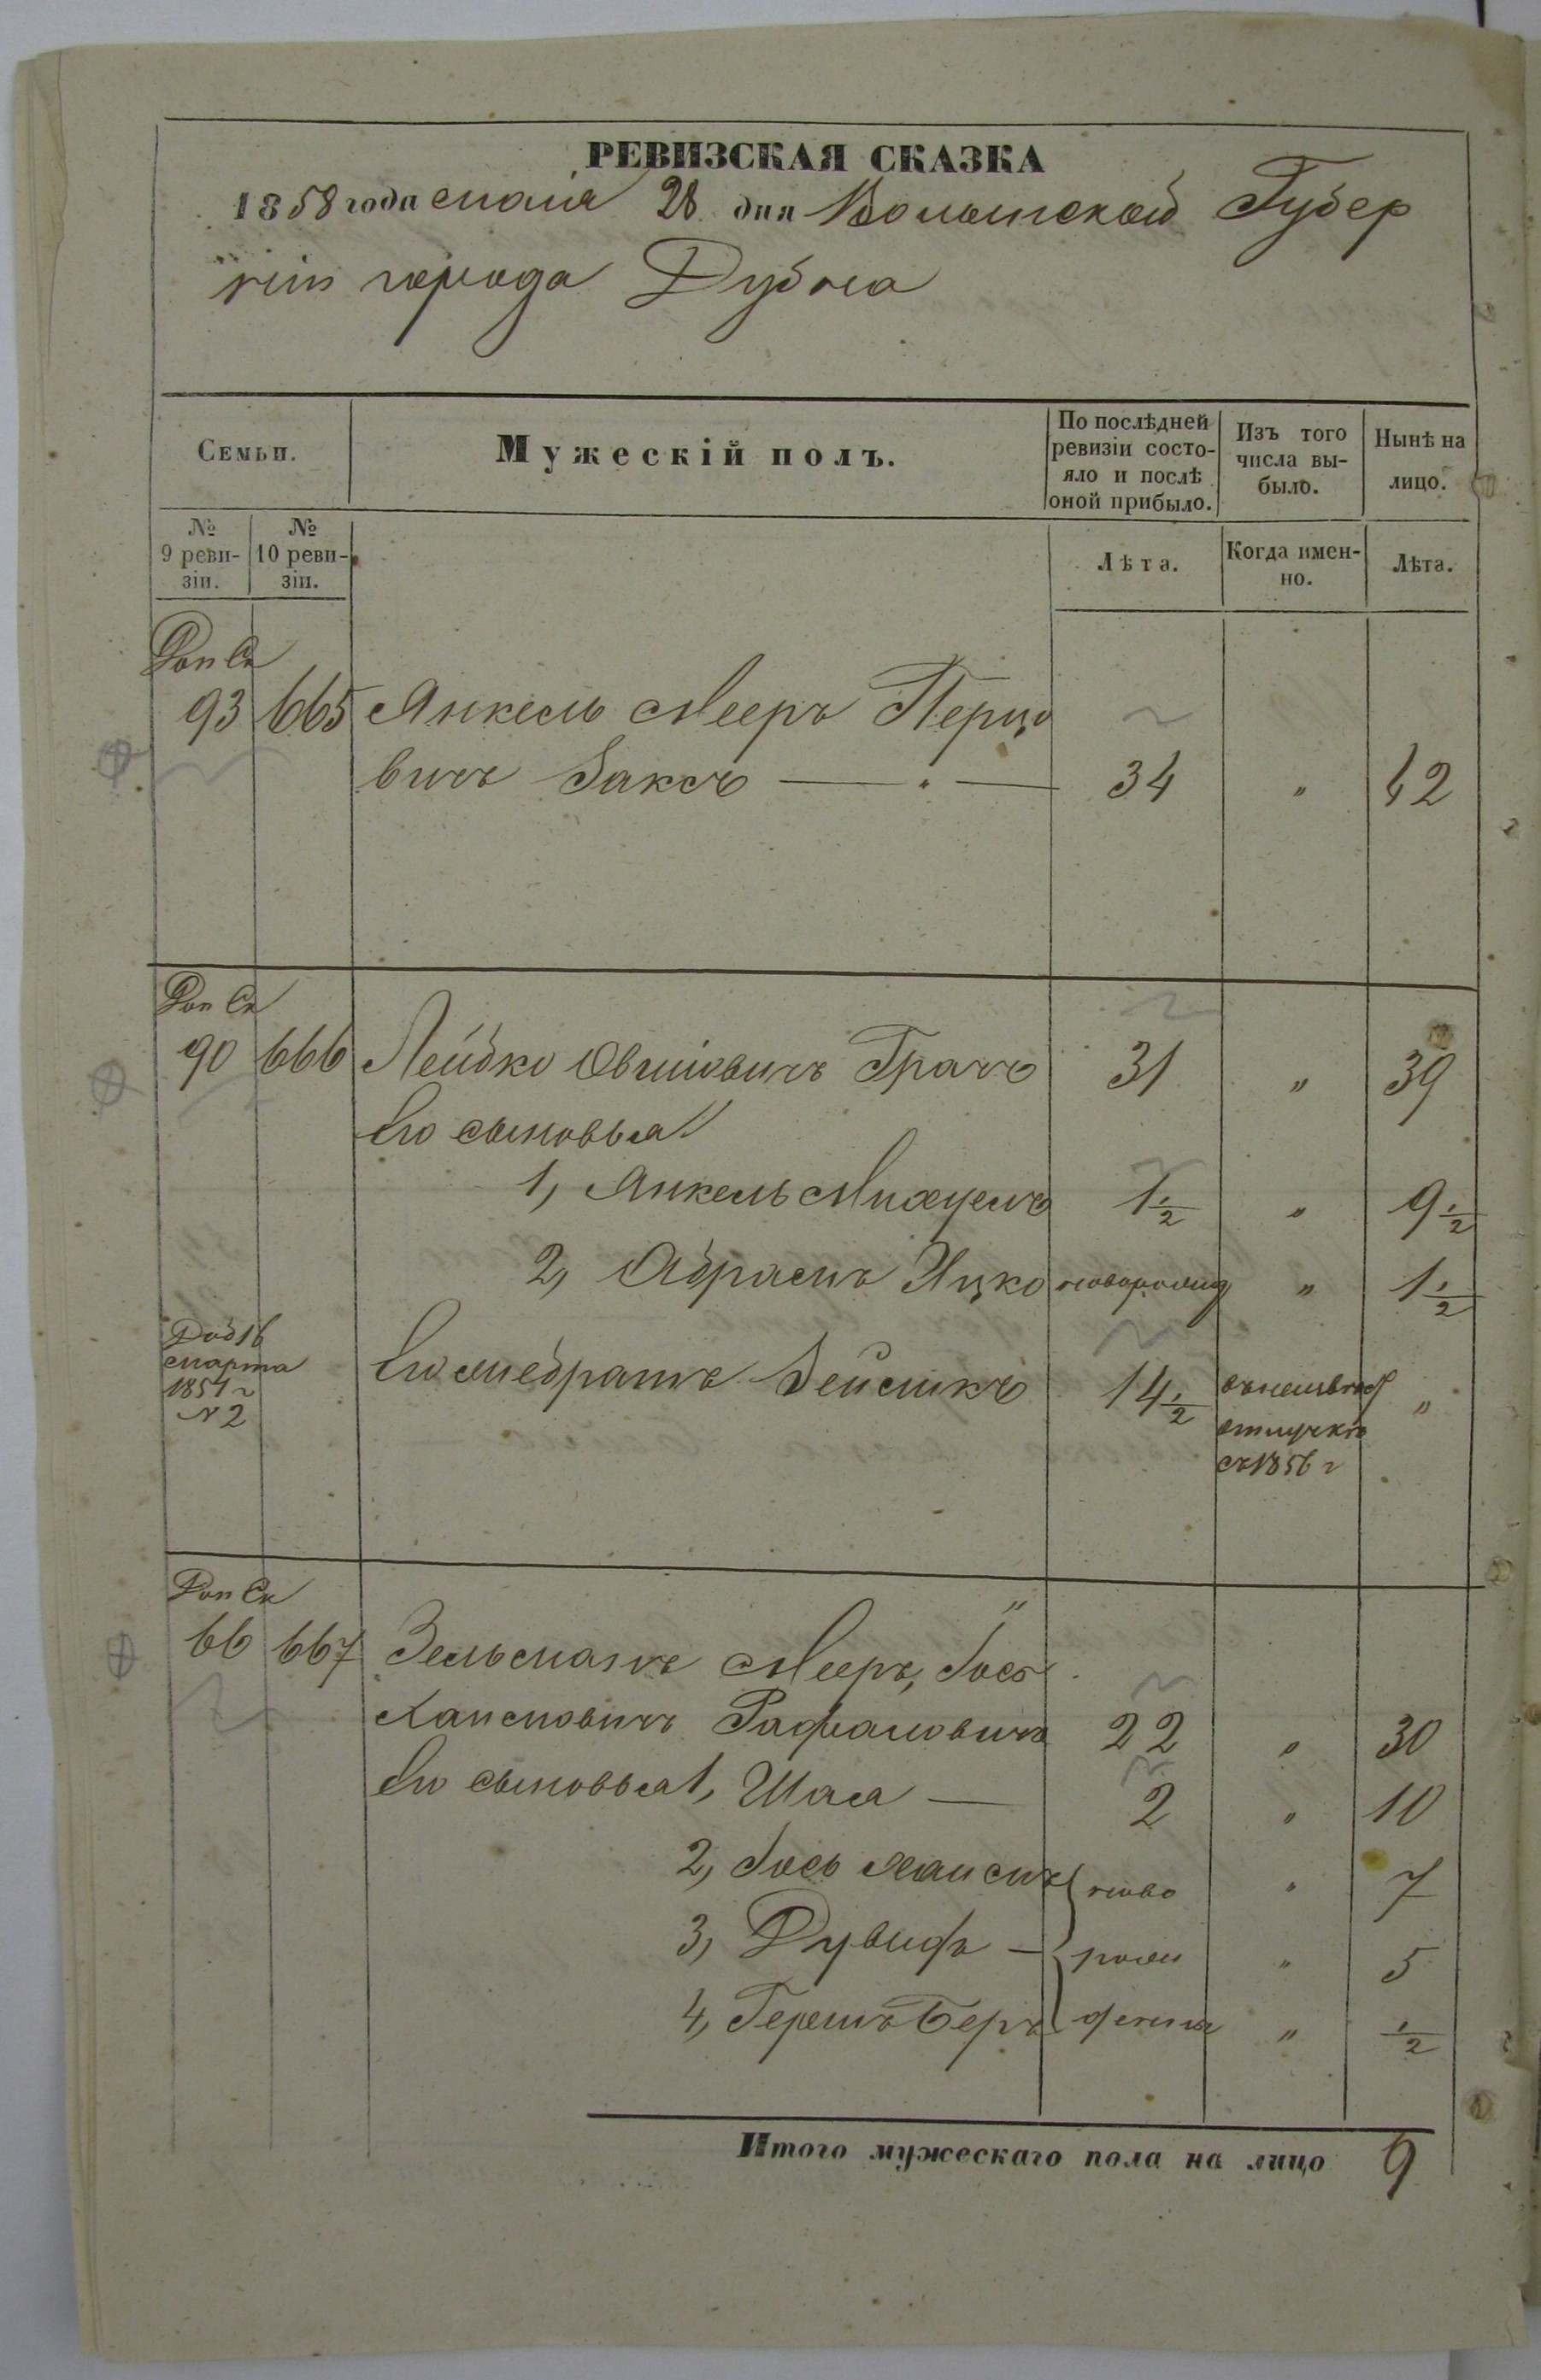 РЕВИЗСКАЯ СКАЗКА
1858 года маія 28 дня Волынской Губер
ніи города Дубна
Семьи.
Мужескій полъ.
По послѣдней ревизіи состо-
яло и послѣ оной прибыло.
Изъ того числа вы-
было.
Нынѣ на лицо.
№ 9 реви-
зіи.
№ 10 реви-
зіи.
Лѣта.
Когда имен-
но.
Лѣта.
Доп Ск
93 665 Янкель Мееръ Перцо
вичъ Заксъ — 34 " 42
Доп Ск
90 666 Лейбко Овшіовичъ Грачъ 31 " 39
Его сыновья
1, Янкель Михуелъ 1 1/2 " 9 1/2
2, Абрамъ Ицко новорожд " 1 1/2
Доб 16
марта
1851 г
N 2
Его братъ Зейликъ 14 1/2 "
отлучкѣ
съ 1856 г
Доп Ск
66 667 Зельманъ Мееръ, Іось
Хаимовичъ Рафаловичъ 22 " 30
Его сыновья 1, Шая — 2 " 10
2, Іось Хаимъ ново " 7
3, Дувидъ — рож " 5
4, Гершъ Беръ дены " 1/2
Итого мужескаго пола на лицо 9